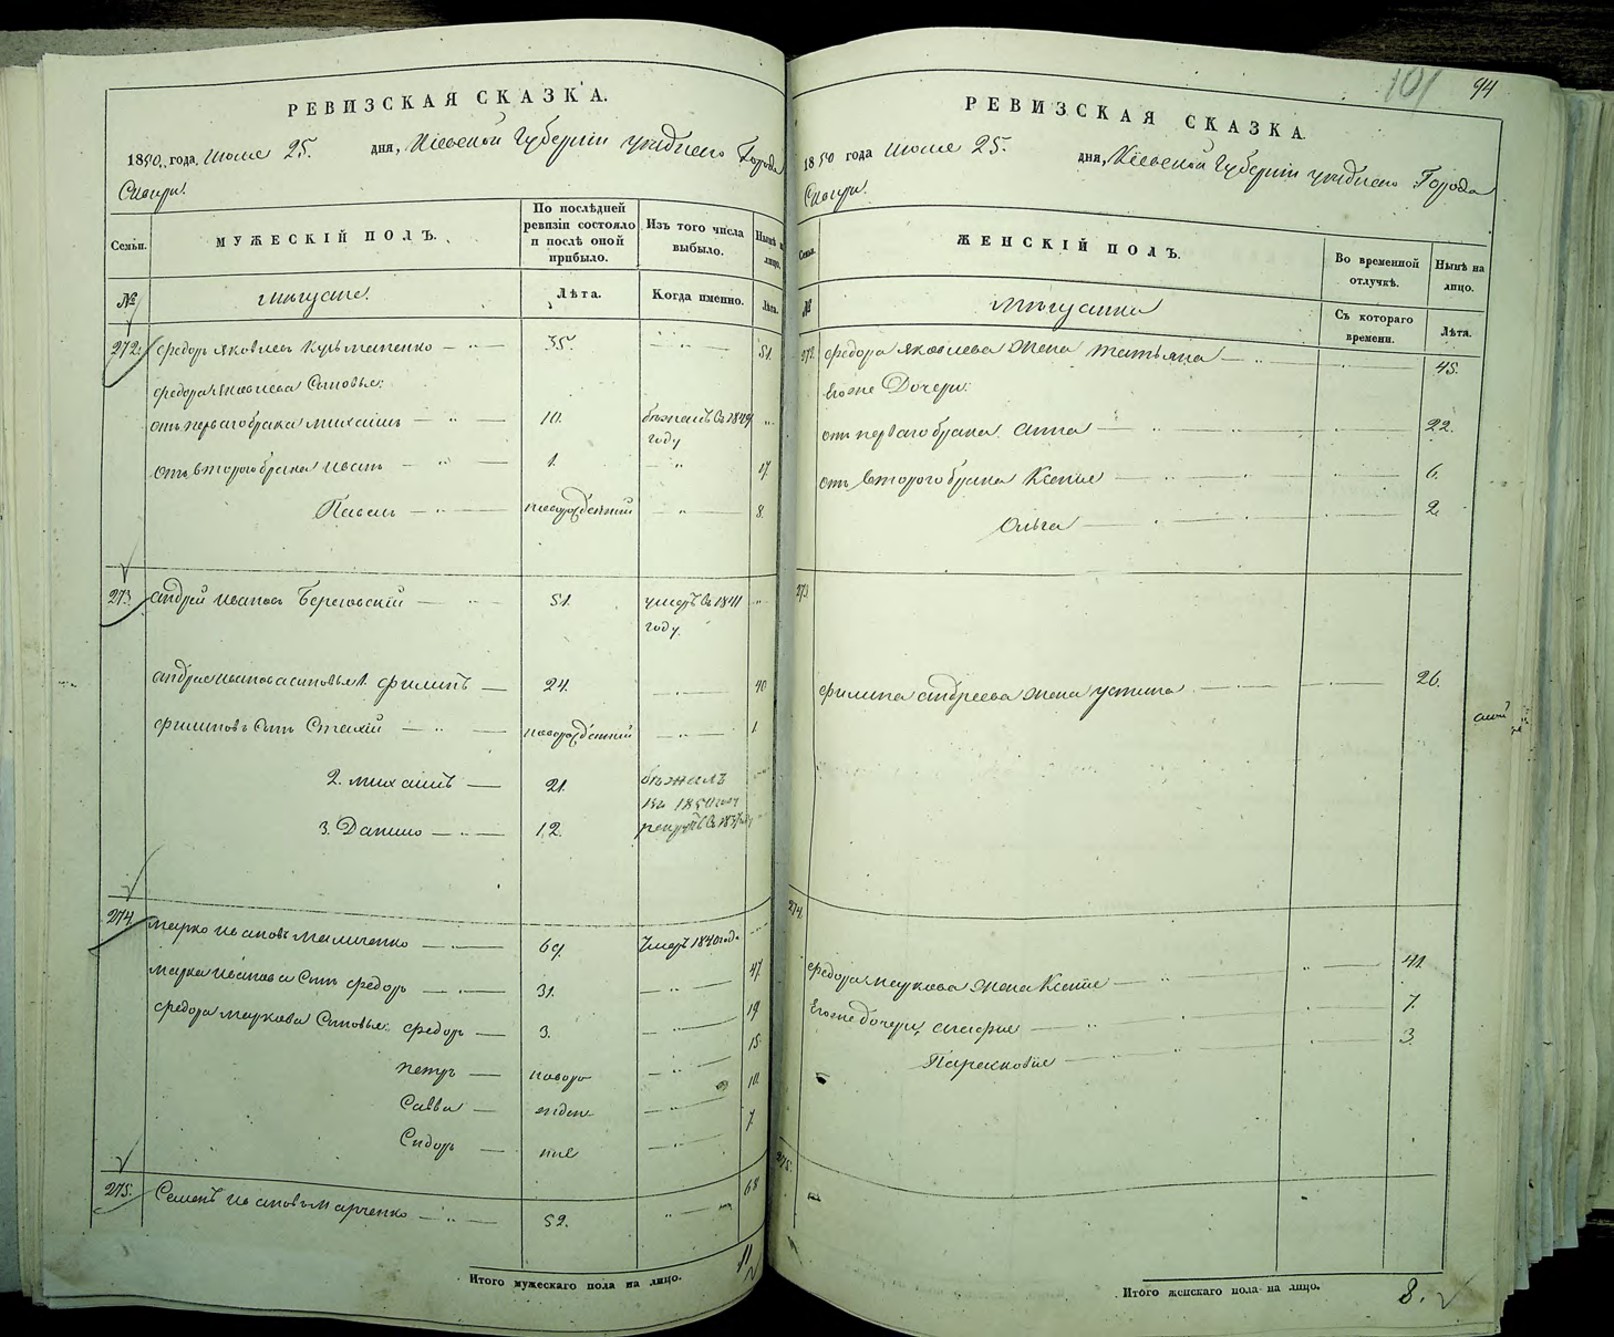 РЕВИЗСКАЯ СКАЗКА.
1850 года, Июля 25. дня, Кіевской Губерніи уѣзднаго Города
Сквиры.
Семьи.
МУЖЕСКІЙ ПОЛЪ.
По послѣдней ревизіи состояло и послѣ оной прибыло.
Изъ того числа выбыло.
Нынѣ на лицо.
№
Лѣта.
Когда именно.
Лѣта.
272. Федоръ Яковлевъ Кузьменко 35. 51.
Федора Яковлева Сыновья:
отъ перваго брака Михаилъ 10. бѣжалъ въ 1849
году
отъ втораго брака Иванъ 1. 17.
Павелъ новорожденный 8.
273. Андрей Ивановъ Береговскій 51. умеръ въ 1841
году.
Андрея Иванова сыновья 1. Филипъ 24. 40
Филиповъ Сынъ новорожденный 1.
2. Михаилъ 21. бѣжалъ
въ 1850
3. Данило 12.
274. Марко Ивановъ 69. Умеръ 1840 года
Марка Иванова Сынъ Федоръ 31. 47.
Федора Маркова Сыновья: Федоръ 3. 19
Петръ новоро 15.
Савва жден 10.
Сидоръ ные 7.
275. Семенъ Ивановъ Марченко 52. 68
Итого мужескаго пола на лицо. 11
101 94
РЕВИЗСКАЯ СКАЗКА.
1850 года Июля 25. дня, Кіевской Губерніи уѣзднаго Города
Сквиры.
Семьи.
ЖЕНСКІЙ ПОЛЪ.
Во временной отлучкѣ.
Нынѣ на лицо.
№
Съ котораго времени.
Лѣта.
272. Федора Яковлева Жена Татьяна 45.
Его же Дочери:
отъ перваго брака Анна 22.
отъ втораго брака Ксенія 6.
Ольга 2.
273.
Филипа Андреева Жена Устина 26.
274.
Федора Маркова Жена Ксенія 41.
Его же дочери 7.
Парасковія 3.
275.
Итого женскаго пола на лицо. 8.